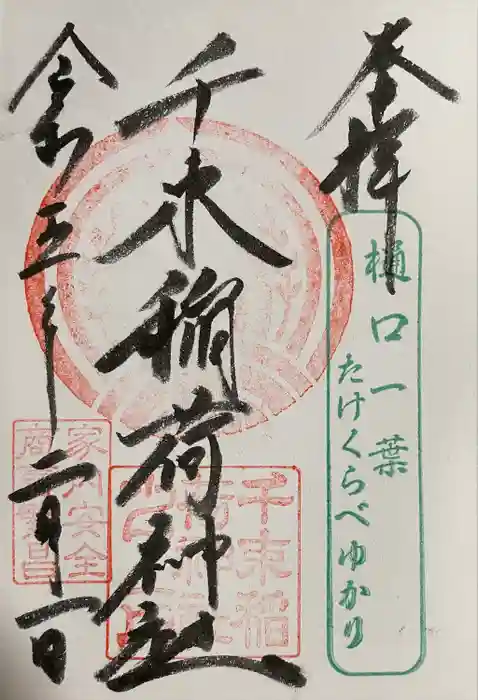 奉拝
樋口一葉
たけくらべゆかり
千束稲荷神社
千束稲荷神社
令和五年二月一日
家内安全
商売繁昌